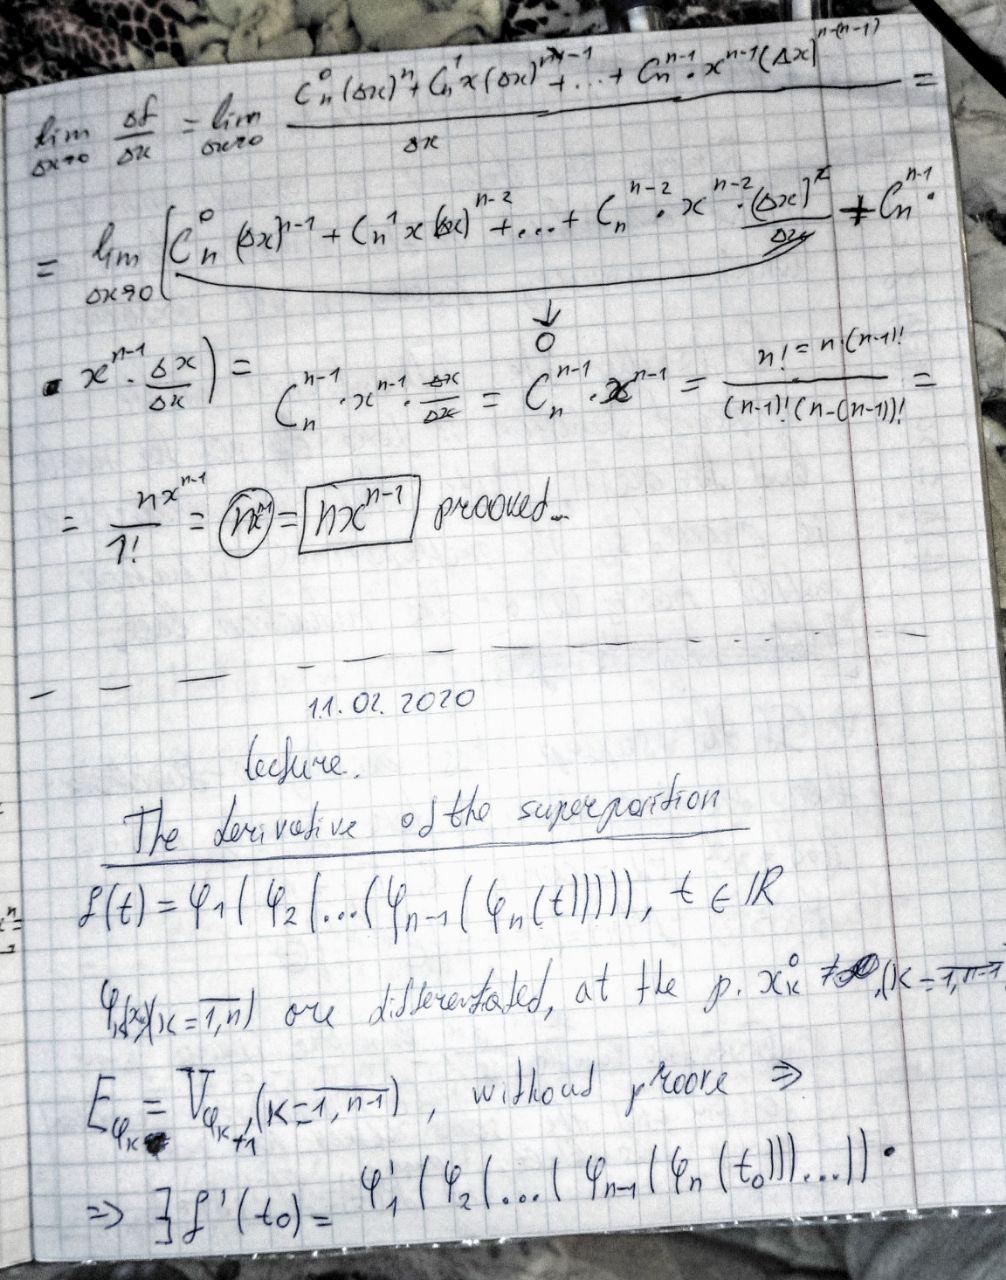 lim Δx→0 Δf/Δx = lim Δx→0 (C_n^0 (Δx)^n + C_n^1 x (Δx)^{n-1} + ... + C_n^{n-1} · x^{n-1} (Δx)^{n-(n-1)})/Δx =
= lim Δx→0 (C_n^0 (Δx)^{n-1} + C_n^1 x (Δx)^{n-2} + ... + C_n^{n-2} · x^{n-2} · (Δx)^2/Δx + C_n^{n-1} ·
↓
0
· x^{n-1} · Δx/Δx) = C_n^{n-1} · x^{n-1} · Δx/Δx = C_n^{n-1} · x^{n-1} = (n! = n·(n-1)!)/((n-1)!(n-(n-1))!) =
= nx^{n-1}/1! = nx^{n-1} = nx^{n-1} prooved...
11.02.2020
lecture.
The derivative of the superposition
f(t) = φ_1(φ_2(...(φ_{n-1}(φ_n(t))))), t ∈ ℝ
(k = 1,n) are differentated, at the p. x_k^0, (k = 1,n-1
E_{φ_k} = V_{φ_{k+1}}, (k = 1,n-1), without proove ⇒
⇒ ∃ f'(t_0) = φ_1'(φ_2(...(φ_{n-1}(φ_n(t_0)))...)) ·